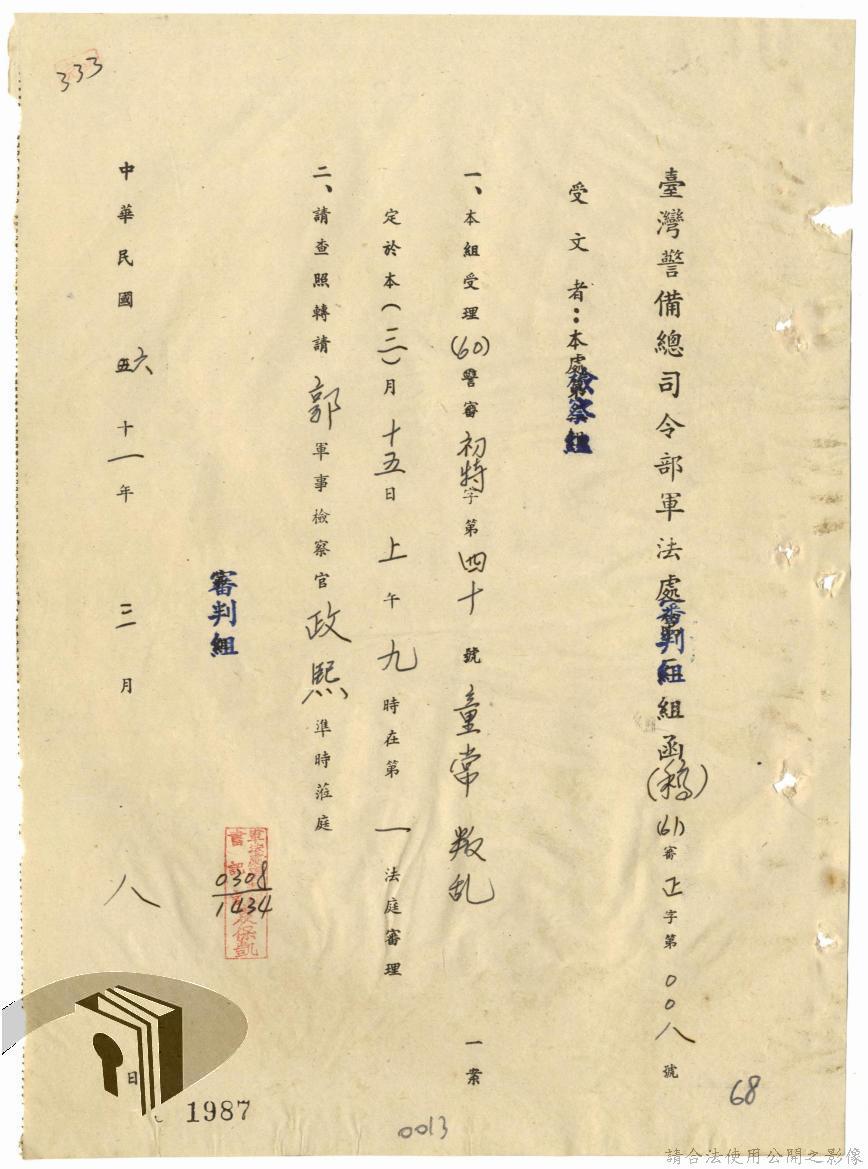 333
臺灣警備總司令部軍法處審判組組函(稿)(61)審正字第00八號
受文者：本處檢察組
一、本組受理(60)警審初特字第四十號童常叛乱一案
定於本(三)月十五日上午九時在第一法庭審理
二、請查照轉請郭軍事檢察官政熙準時蒞庭
審判組
0308
1434
中華民國六十一年三月八日
1987
0013
68
請合法使用公開之影像